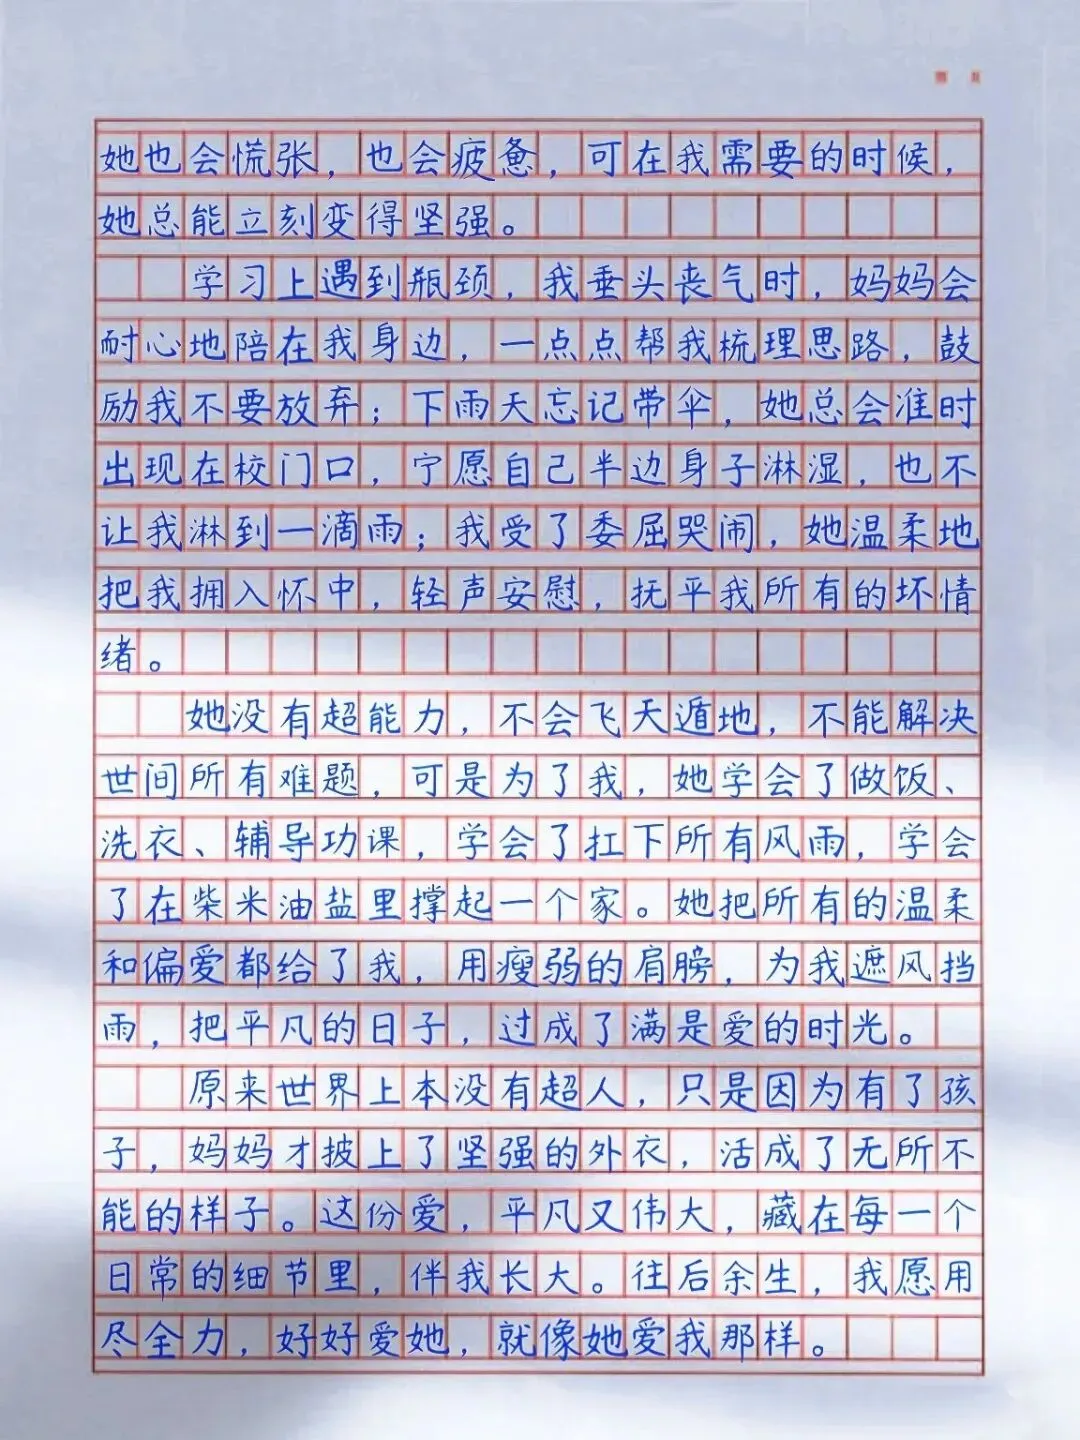 她也会慌张，也会疲惫，可在我需要的时候，
她总能立刻变得坚强。
学习上遇到瓶颈，我垂头丧气时，妈妈会
耐心地陪在我身边，一点点帮我梳理思路，鼓
励我不要放弃；下雨天忘记带伞，她总会准时
出现在校门口，宁愿自己半边身子淋湿，也不
让我淋到一滴雨；我受了委屈哭闹，她温柔地
把我拥入怀中，轻声安慰，抚平我所有的坏情
绪。
她没有超能力，不会飞天遁地，不能解决
世间所有难题，可是为了我，她学会了做饭、
洗衣、辅导功课，学会了扛下所有风雨，学会
了在柴米油盐里撑起一个家。她把所有的温柔
和偏爱都给了我，用瘦弱的肩膀，为我遮风挡
雨，把平凡的日子，过成了满是爱的时光。
原来世界上本没有超人，只是因为有了孩
子，妈妈才披上了坚强的外衣，活成了无所不
能的样子。这份爱，平凡又伟大，藏在每一个
日常的细节里，伴我长大。往后余生，我愿用
尽全力，好好爱她，就像她爱我那样。